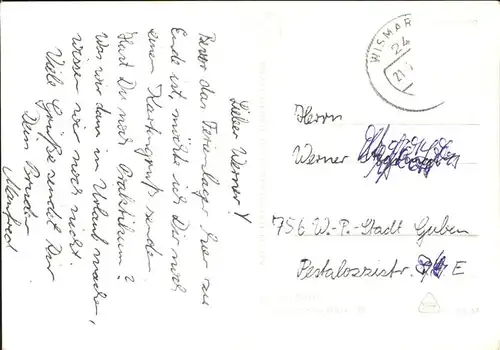 Lieber Werner!
Bevor das Ferienlager hier zu
Ende ist, möchte ich Dir noch
einen Kartengruß senden.
Hast Du noch Praktikum?
Was wir dann im Urlaub machen,
wissen wir noch nicht.
Viele Grüße sendet Dir
Dein Bruder
Manfred
WISMAR
24
21.
Herrn
Werner
756 W.-P.-Stadt Guben
Pestalozzistr. E